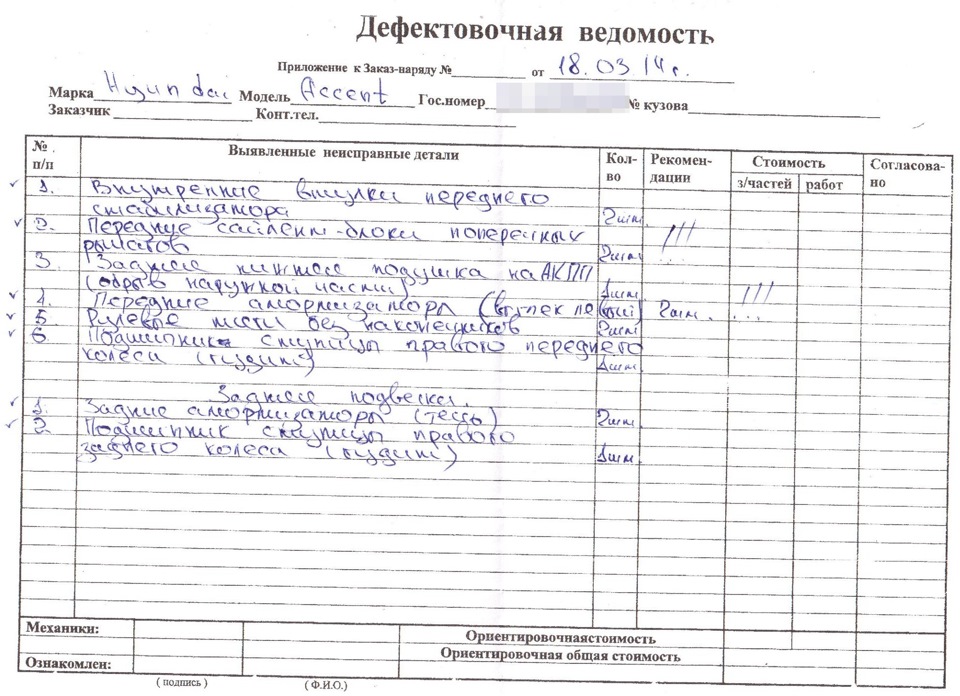 Дефектовочная ведомость
Приложение к Заказ-наряду №__________ от 18.03 14г.
Марка Hyundai Модель Accent Гос.номер № кузова
Заказчик Конт.тел.
№ п/п Выявленные неисправные детали Кол-во Рекомен-дации Стоимость з/частей работ Согласова-но
1. Внутренние втулки переднего
стабилизатора 2шт.
2. Передние сайлент-блоки поперечных
рычагов 2шт. !!!
3. Заднее нижнее подушка на АКПП
(обрыв наружной части) 1шт. !!!
4. Передние амортизаторы (вытек левый) 2шт. ...
5. Рулевые тяги без наконечников 2шт.
6. Подшипник ступицы правого переднего
колеса (гудит) 1шт.
Заднее подвеска.
1. Задние амортизаторы (течь) 2шт.
2. Подшипник ступицы правого
заднего колеса (гудит) 1шт.
Механики: Ориентировочнаястоимость
Ориентировочная общая стоимость
Ознакомлен:
(подпись) (Ф.И.О.)